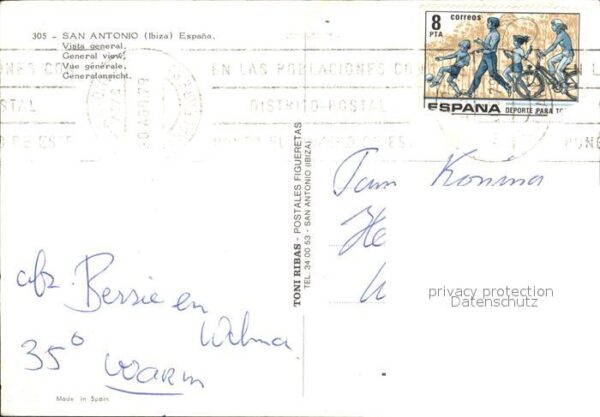 305 - SAN ANTONIO (Ibiza) España.
Vista general.
General view.
Vue générale.
Generalansicht.
EN LAS POBLACIONES CON
DISTRITO POSTAL
8
PTA
correos
ESPAÑA DEPORTE PARA TO
TONI RIBAS - POSTALES FIGUERETAS
TEL. 34 00 53 - SAN ANTONIO (IBIZA)
Fam Konina
He
privacy protection
Datenschutz
afz. Bessie en
Wilma
35° warm
Made in Spain